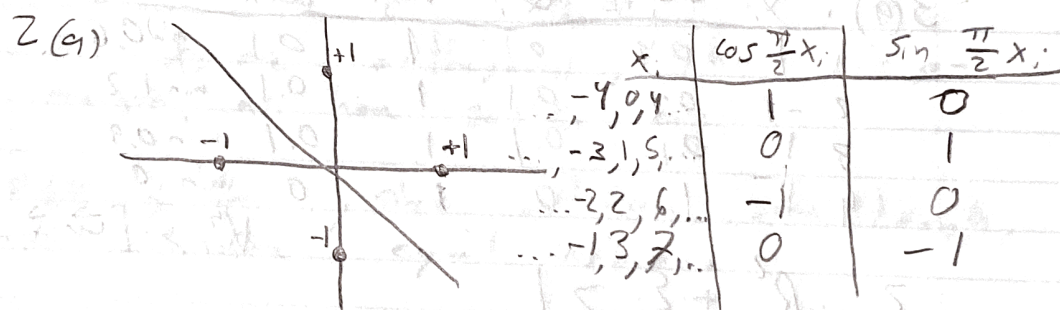 2.(a)
+1
-1
+1
-1
x_i | cos π/2 x_i | sin π/2 x_i
..., -4, 0, 4... | 1 | 0
..., -3, 1, 5, ... | 0 | 1
... -2, 2, 6, ... | -1 | 0
... -1, 3, 7, ... | 0 | -1